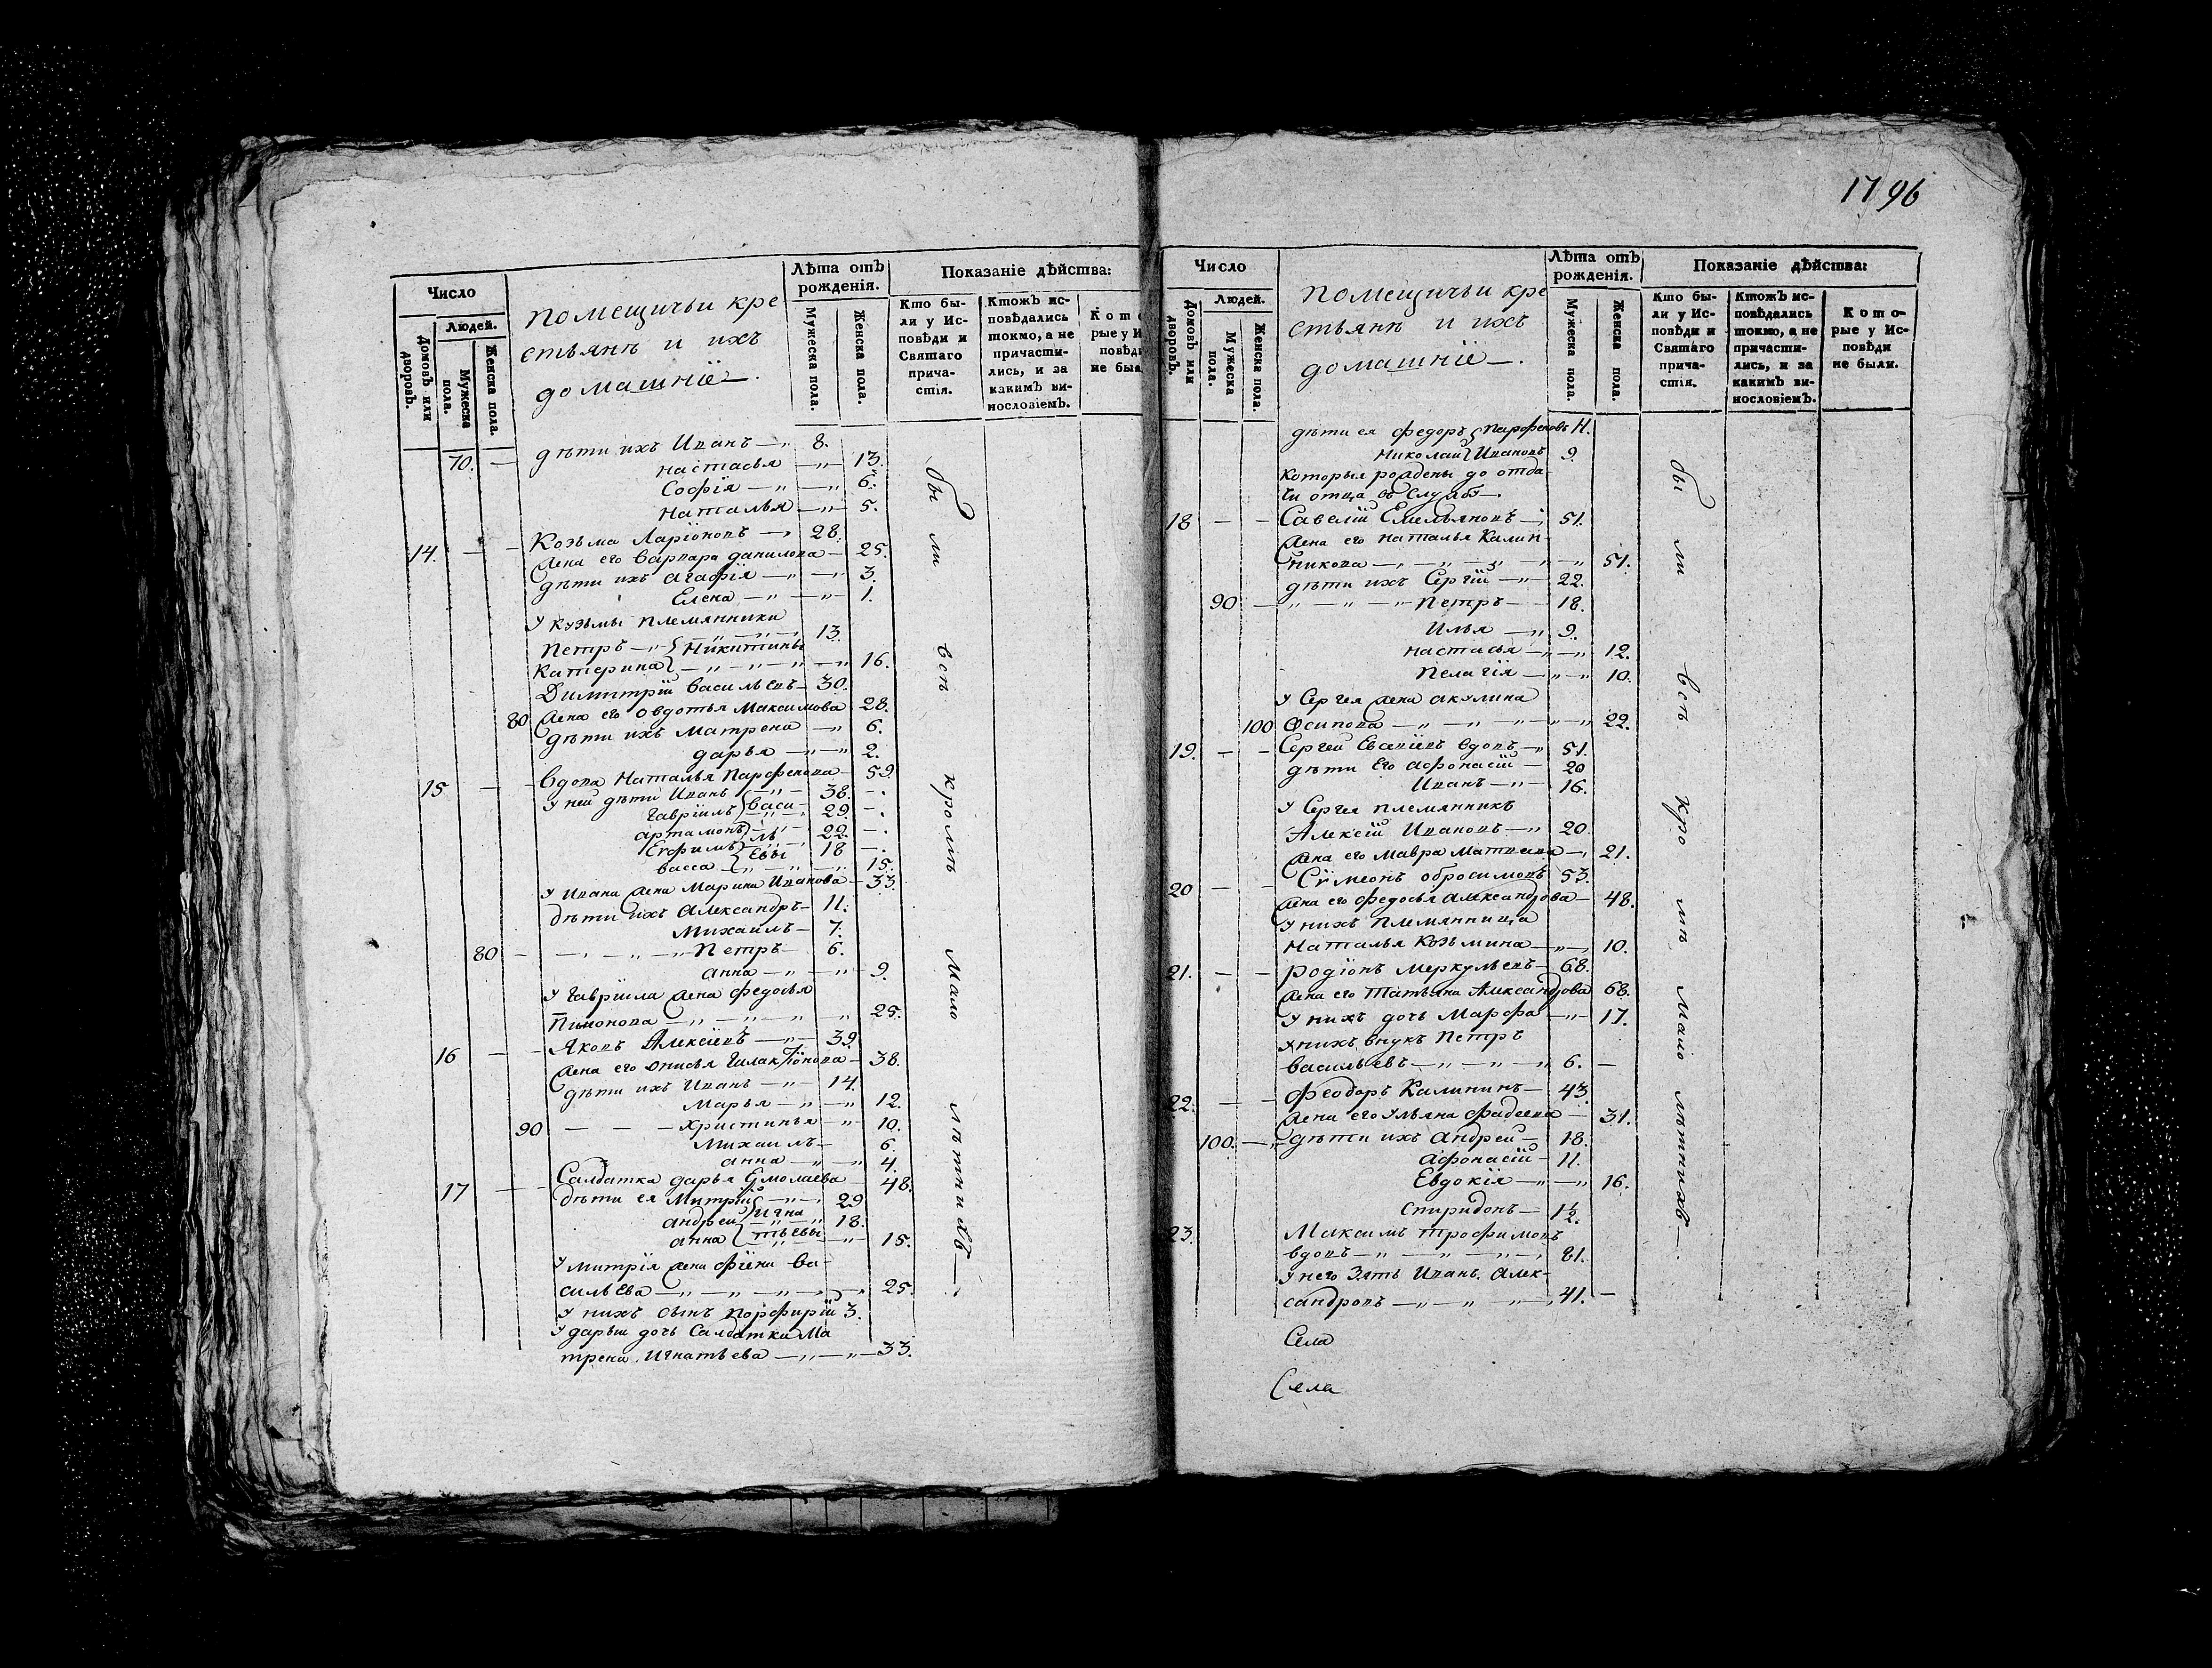 1796
Число
Людей.
Домовъ или дворовъ.
Мужеска пола.
Женска пола.
помещичьи кре
стьянъ и ихъ
домашнїе.
Лѣта отъ рожденія.
Мужеска пола.
Женска пола.
Показаніе дѣйства:
Кто бы-
ли у Ис-
повѣди и
Святаго
прича-
стія.
Ктожъ ис-
повѣдались
токмо, а не
причасти-
лись, и за
какимъ ви-
нословіемъ.
рые у И
повѣд
не был
70. — дѣти ихъ Иванъ — 8.
Настасья — 13.
Софїя — 6.
Наталья — 5.
14. — — Козьма Ларїоновъ — 28.
жена его Варвара Данилова — 25.
дѣти ихъ Агафїя — 3.
Елена — 1.
У Кузьмы племянники
Петръ } Никитины 13.
Катерина — 16.
Димитрїй Васильевъ — 30.
80 жена его Овдотья Максимова 28.
дѣти ихъ Матрена — 6.
Дарья — 2.
15 — — вдова Наталья Парфенова — 59.
У ней дѣти Иванъ — 38.
Гаврїилъ } Васи- 29.
Артамонъ } ль 22.
Егфимъ } евы 18
Васса — 15.
У Ивана жена Марина Иванова — 33.
дѣти ихъ Александръ — 11.
Михаилъ — 7.
80 — Петръ — 6.
Анна — 9.
У Гаврїила жена Федосья
— 25.
16 — — Яковъ Алексїевъ — 39.
жена его Галактїонова — 38.
дѣти ихъ Иванъ — 14.
Марья — 12.
90 — — Христинья — 10.
Михаилъ — 6.
Анна — 4.
17 — — Салдатка Дарья Ермолаева — 48.
дѣти ея Митрїй 29
Андрей } Игна 18.
Анна } тьевы — 15.
У Митрїя жена Фїена Ва-
сильева — 25.
У нихъ сынъ Порфирїй 3.
У Дарьи дочь Салдатка Ма
трена Игнатьева — 33.
бы ли всѣ кромѣ мало лѣтнихъ.
Число
Людей.
Домовъ или дворовъ.
Мужеска пола.
Женска пола.
помещичьи кре
стьянъ и ихъ
домашнїе.
Лѣта отъ рожденія.
Мужеска пола.
Женска пола.
Показаніе дѣйства:
Кто бы-
ли у Ис-
повѣди и
Святаго
прича-
стія.
Ктожъ ис-
повѣдались
токмо, а не
причасти-
лись, и за
какимъ ви-
нословіемъ.
Кото-
рые у Ис-
повѣди
не были.
дѣти ея Федоръ } Парфеновъ 11.
Николай } Ивановъ 9.
Которыя рождены до отда
чи отца въ службу.
18 — — Савелїй Емельяновъ — 51.
жена его Наталья Калин-
никова — 51.
дѣти ихъ Сергїй — 22.
90 — Петръ — 18.
Илья — 9.
Настасья — 12.
Пелагїя — 10.
У Сергея жена Акулина
100 Осипова — 22.
19. — — Сергей Евсевїевъ вдовъ — 51.
дѣти его Афонасїй — 20
Иванъ — 16.
У Сергея племянникъ
Алексїй Ивановъ — 20.
жена его Мавра Матвеева — 21.
20 — — Сѵмеонъ Обросимовъ 53.
жена его Федосья Александрова — 48.
У нихъ племянница
Наталья Козьмина — 10.
21. — — Родїонъ Меркульевъ — 68.
жена его Татьяна Александрова 68.
У нихъ дочь Марфа — 17.
У нихъ внукъ Петръ
Васильевъ — 6. —
22. — — Феодоръ Калининъ — 43.
жена его Ульяна Фадеева — 31.
100. — дѣти ихъ Андрей — 18.
Афонасїй — 11.
Евдокїя — 16.
Спиридонъ — 1½.
23. Максимъ Трофимовъ
вдовъ — 81.
У него зять Иванъ Алек-
сандровъ — 41. —
бы ли всѣ кро мѣ мало лѣтнихъ.
Села
Села